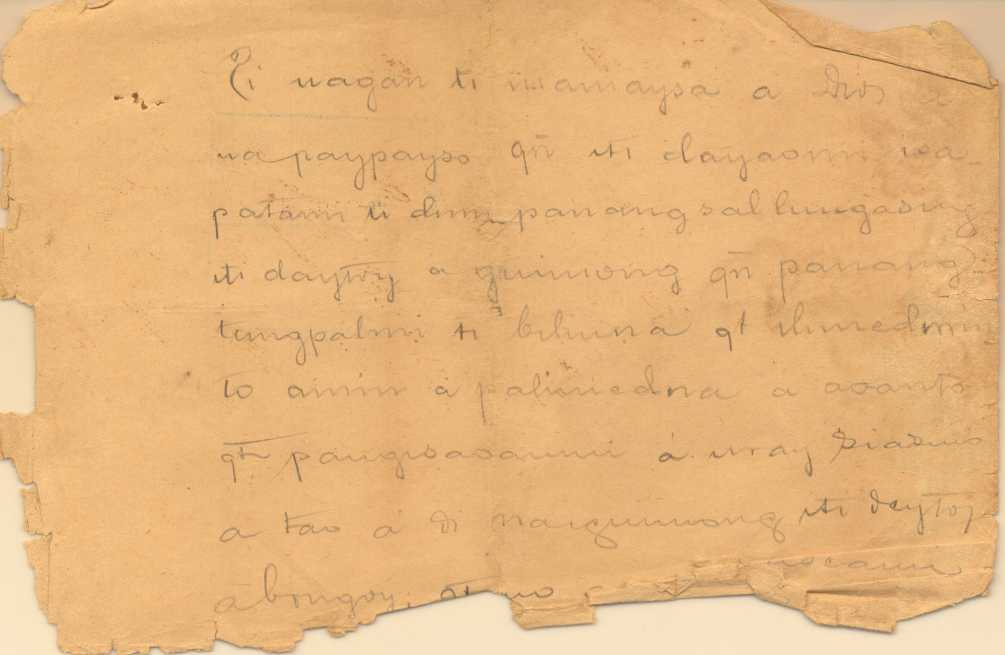 Ti nagan ti mamaysa a Dios a
napaypayso qñ iti dayaonmi na
patanmi ti dimi panangsallungasing
iti daytoy a guimong qñ panang
tungpalmi ti bilinna qt ilimedmi
to amin a palimedna a aoanto
qt pangisaoanmi a uray siasino
a tao a di naiguimong iti daytoy
a bongoy;